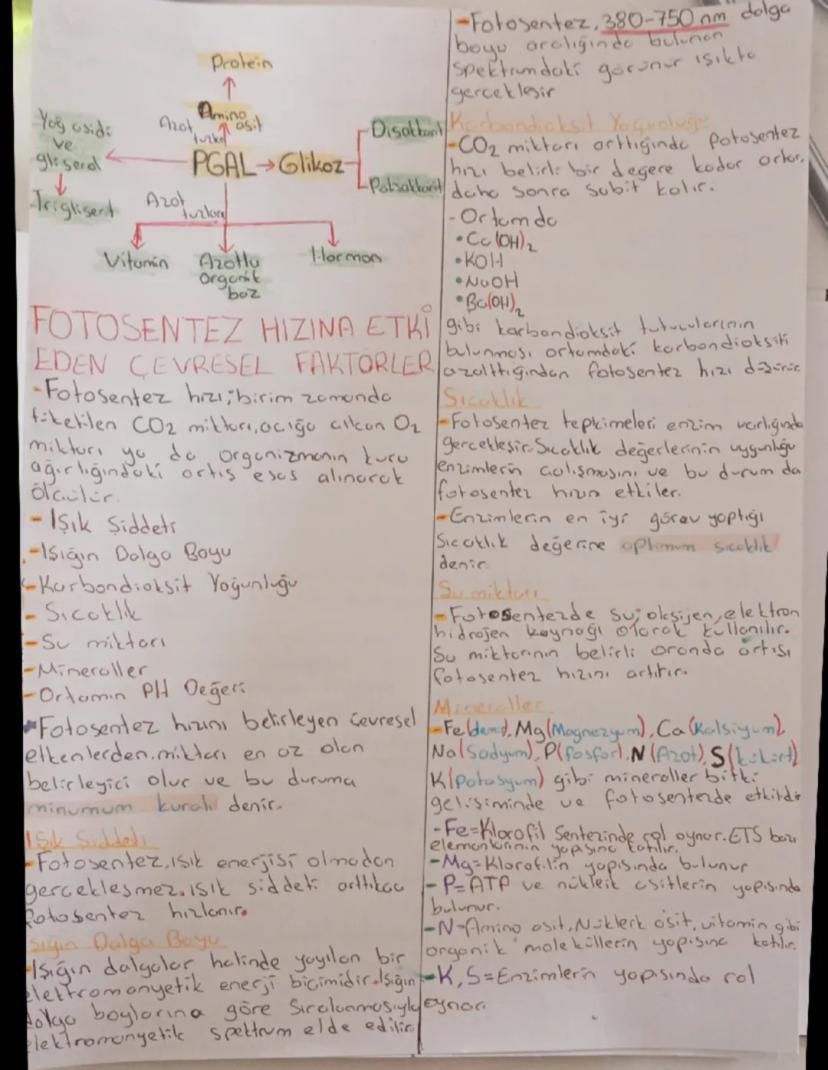 Protein
Amino
asit
Azot
tuzları
Yağ asidi
ve
gliserol
PGAL
Glikoz
Disakkarit
Polisakkarit
Trigliserit
Azot
tuzları
Vitamin
Azotlu
organik
baz
Hormon
FOTOSENTEZ HIZINA ETKİ
EDEN ÇEVRESEL FAKTÖRLER
-Fotosentez hızı; birim zamanda
tüketilen CO2 miktarı, açığa çıkan O2
miktarı ya da organizmanın kuru
ağırlığındaki artış esas alınarak
ölçülür.
- Işık Şiddeti
-Işığın Dalga Boyu
-Karbondioksit Yoğunluğu
- Sıcaklık
-Su miktarı
-Mineraller
-Ortamın PH Değeri
*Fotosentez hızını belirleyen çevresel
etkenlerden, miktarı en az olan
belirleyici olur ve bu duruma
minumum kuralı denir.
Işık Şiddeti
-Fotosentez, ışık enerjisi olmadan
gerçekleşmez. ışık şiddeti arttıkça
fotosentez hızlanır.
Işığın Dalga Boyu
-Işığın dalgalar halinde yayılan bir
elektromanyetik enerji biçimidir. Işığın
dalga boylarına göre sıralanmasıyla
elektromanyetik spektrum elde edilir.
-Fotosentez, 380-750 nm dalga
boyu aralığında bulunan
spektrumdaki görünür ışıkta
gerçekleşir
Karbondioksit Yoğunluğu
-CO2 miktarı arttığında fotosentez
hızı belirli bir değere kadar artar,
daha sonra sabit kalır.
- Ortamda
• Ca(OH)2
• KOH
• NaOH
• Ba(OH)2
gibi karbondioksit tutucularının
bulunması ortamdaki karbondioksiti
azalttığından fotosentez hızı düşürür.
Sıcaklık
-Fotosentez tepkimeleri enzim varlığında
gerçekleşir. Sıcaklık değerlerinin uygunluğu
enzimlerin çalışmasını ve bu durum da
fotosentez hızını etkiler.
-Enzimlerin en iyi görev yaptığı
sıcaklık değerine optimum sıcaklık
denir.
Su miktarı
-Fotosentezde su; oksijen, elektron
hidrojen kaynağı olarak kullanılır.
Su miktarının belirli oranda artışı
fotosentez hızını artırır.
Mineraller
-Fe(demir), Mg(Magnezyum), Ca(Kalsiyum),
Na(Sodyum), P(fosfor), N(Azot), S(kükürt)
K(Potasyum) gibi mineraller bitki
gelişiminde ve fotosentezde etkilidir
-Fe=Klorofil Sentezinde rol oynar. ETS bazı
elemanlarının yapısına katılır.
-Mg=Klorofilin yapısında bulunur
-P=ATP ve nükleik asitlerin yapısında
bulunur.
-N=Amino asit, Nükleik asit, vitamin gibi
organik moleküllerin yapısına katılır.
-K,S=Enzimlerin yapısında rol
oynar.